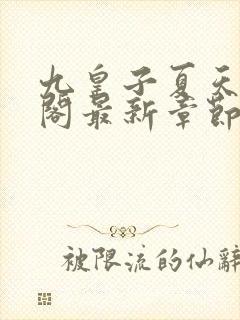 九皇子夏天
閣最新章節
被限流的仙辭